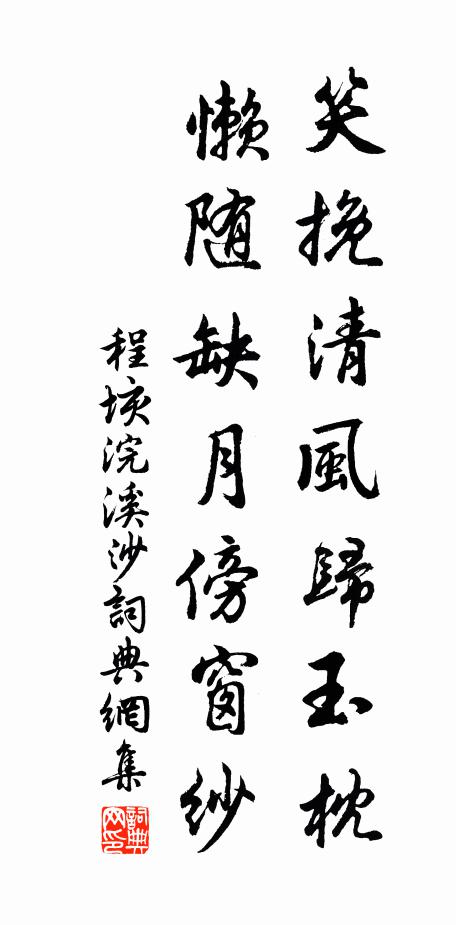 笑挽清風歸玉枕
懶随缺月傍窗紗
程垓浣溪沙詞典網集
詞典网印